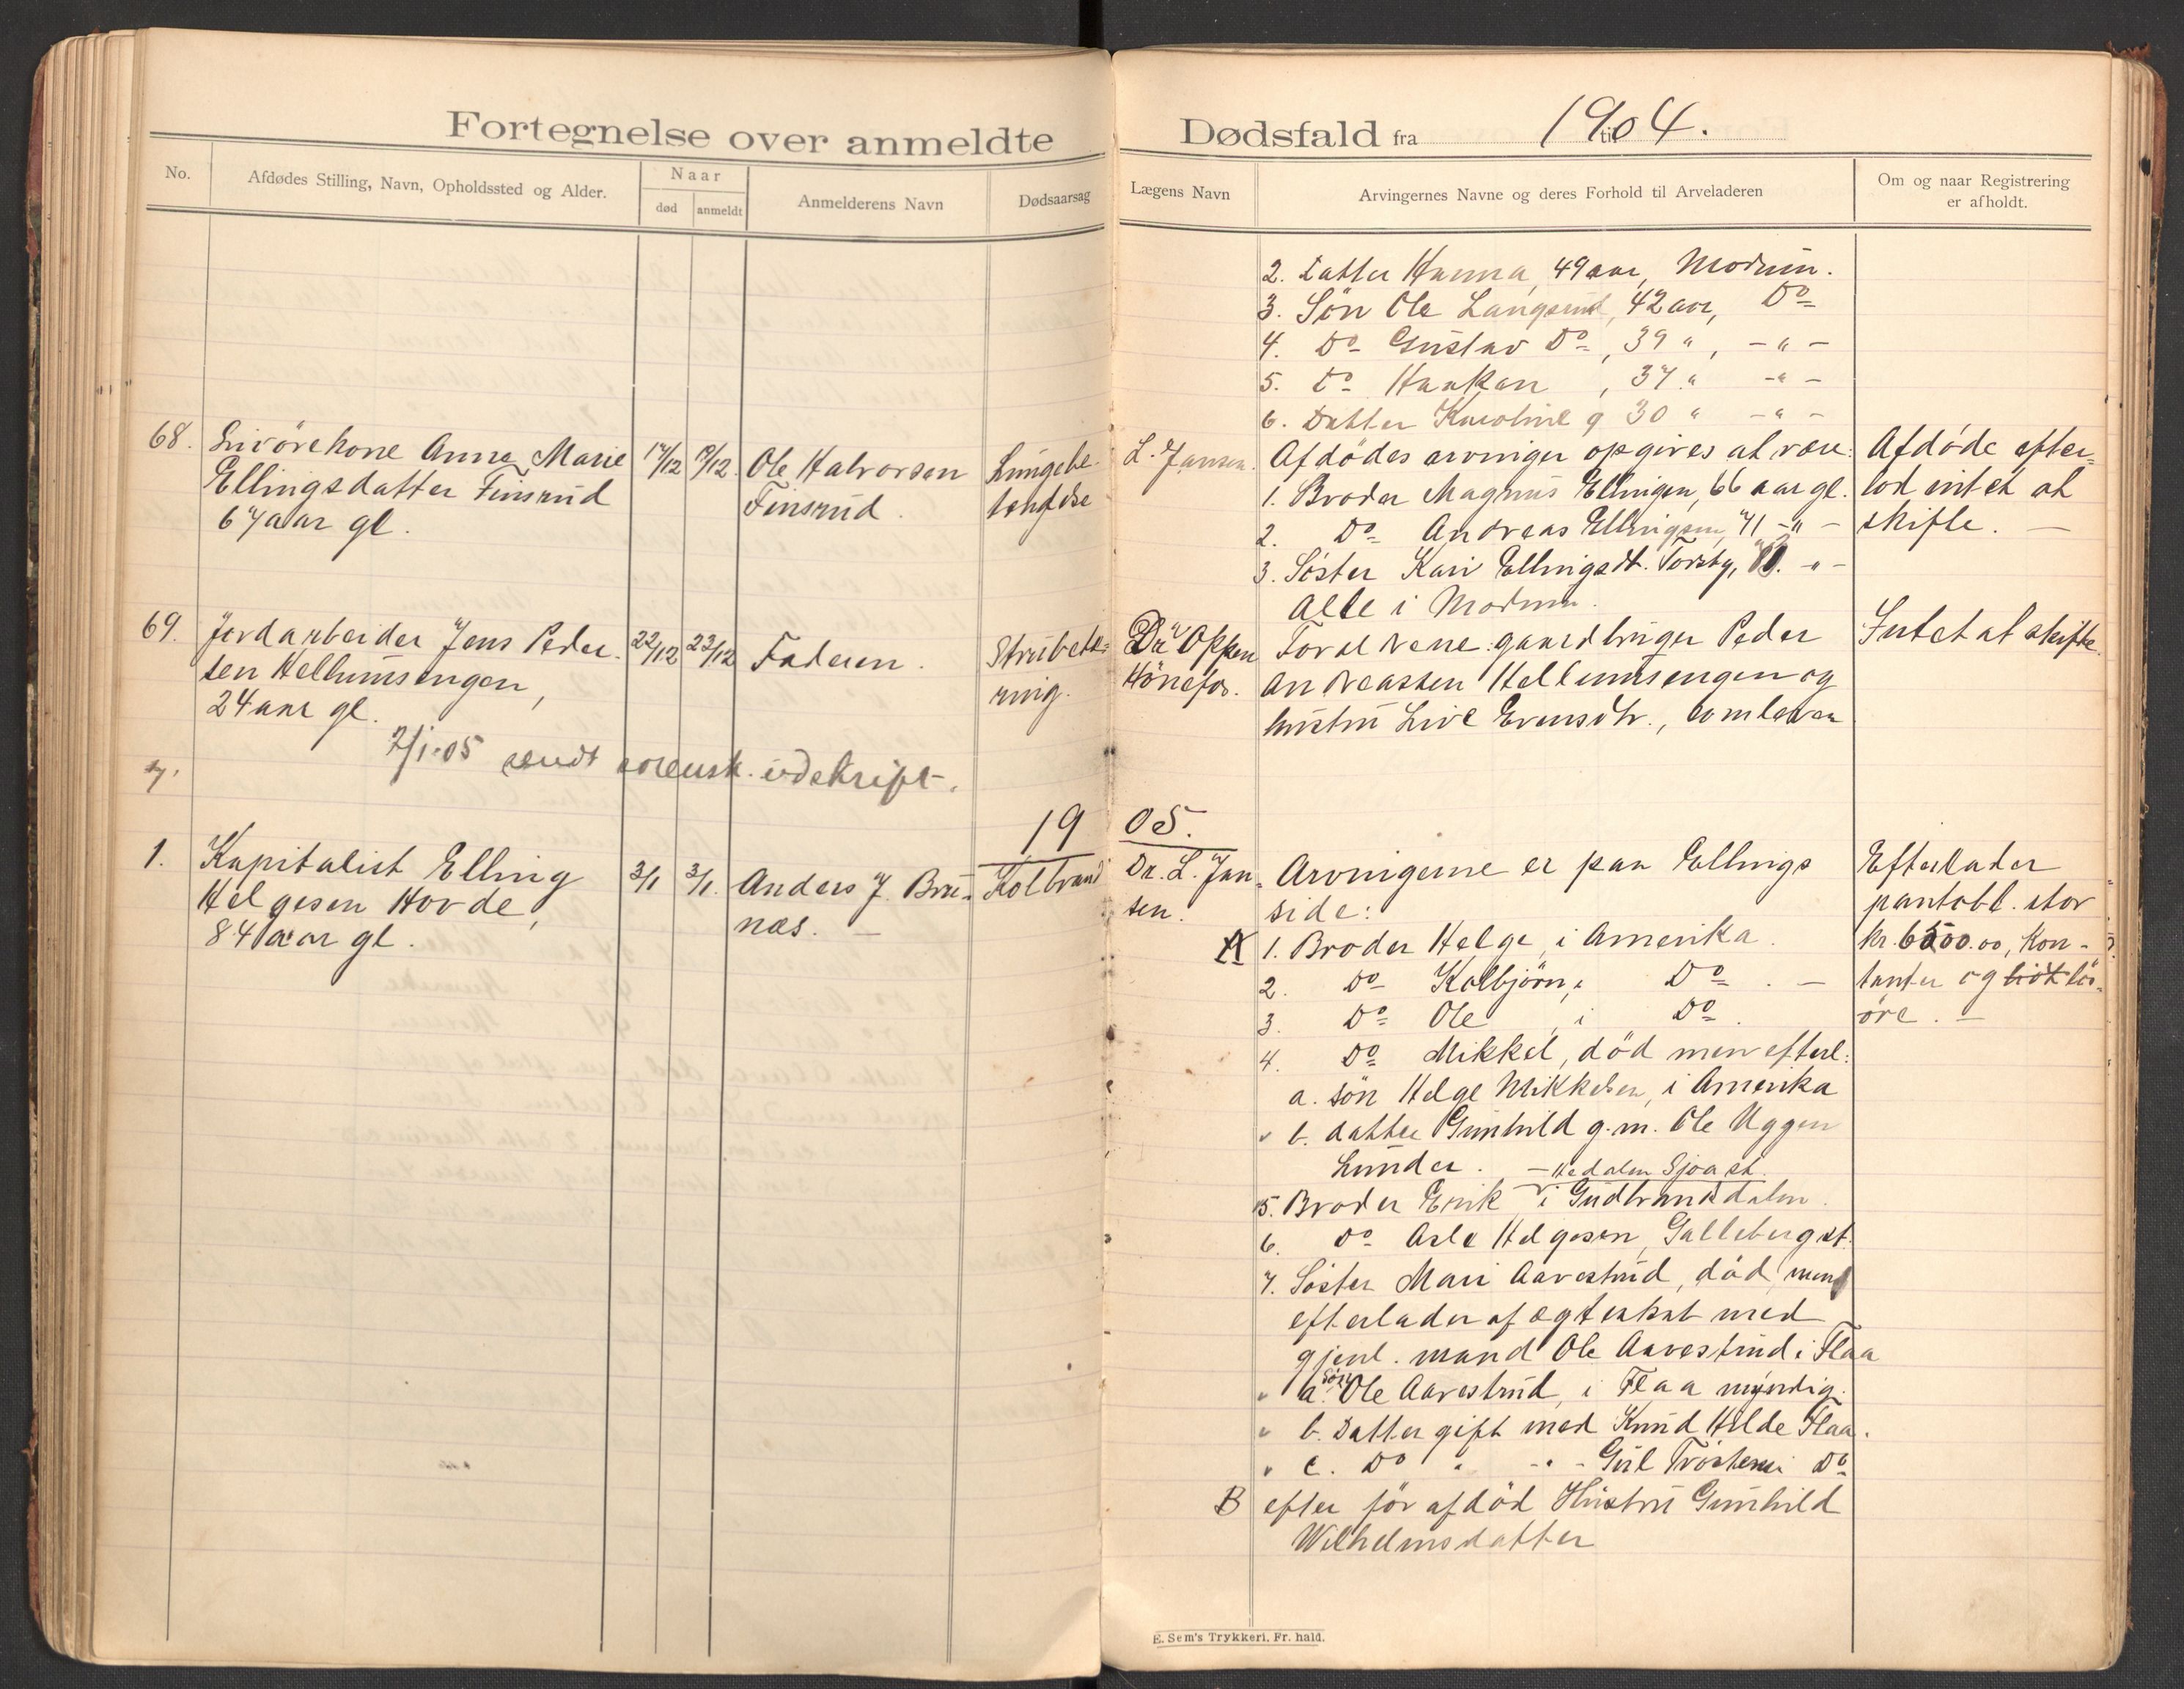 Fortegnelse over anmeldte
No.
Afdødes Stilling, Navn, Opholdssted og Alder.
Naar
død
anmeldt
Anmelderens Navn
Dødsaarsag
68. Livørekone Anna Marie
Ellingsdatter Finsrud
67 aar gl.
17/12
19/12.
Ole Halvorsen
Finsrud.
Lungebe-
tendelse
69. Jordarbeider Jens Peder-
sen Hellumsengen,
24 aar gl.
22/12
23/12
Faderen.
Strubetæ-
ring.
2/1-05 sendt sorensk. udskrift.
7.
19
1. Kapitalist Elling
Helgesen Hovde,
84 aar gl.
3/1
3/1.
Anders J. Bru-
næs. —
Kolbrand
Dødsfald fra 1904.
til
Lægens Navn
Arvingernes Navne og deres Forhold til Arveladeren
Om og naar Registrering
er afholdt.
2. Datter Hanna, 49 aar, Modum.
3. Søn Ole Langerud, 42 aar, Do
4. Do Gustav Do, 39 " , - " -
5. Do Haakon , 37 " - " -
6. Datter Karoline g 30 " - " -
L. Jansen.
Afdødes arvinger opgives at være:
1. Broder Magnus Ellingsen, 66 aar gl.
2. Do Andreas Ellingsen, 71 - " -
3. Søster Kari Ellingsdt. Torsby, - " -
Alle i Modum.
Afdøde efter-
lod intet at
skifte. —
Dr Oppen
Hönefos.
Forældrene gaardbruger Peder
Andreassen Hellumsengen og
hustru Live Evensdtr.,
Intet at skifte.
05.
Dr. L. Jan-
sen.
Arvingerne er paa Ellings
side:
A 1. Broder Helge, i Amerika.
2. Do Kolbjørn, i Do. —
3. Do Ole, i Do.
4. Do Mikkel, død men efterl:
a. søn Helge Mikkelsen, i Amerika
" b. datter Gunhild g. m. Ole Uggen
Lunder. — Hedalen Sjoa st.
5. Broder Erik i Gudbrandsdalen.
6. Do Asle Helgesen, Galleberg st.
7. Søster Mari Aavestrud, død, men
efterlader af ægteskab med
gjenl. mand Ole Aavestrud i Flaa
" a. Søn Ole Aavestrud, i Flaa myndig.
" b. Datter gift med Knud Hilde Flaa.
" c. Do " - " - Gul Trøstem i Do
B efter før afdød Hustru Gunhild
Wilhelmsdatter
Efterlader
pantobl. stor
kr. 6500.00, Kon-
tanter og liøt lö-
øre. —
E. Sem's Trykkeri, Fr. hald.